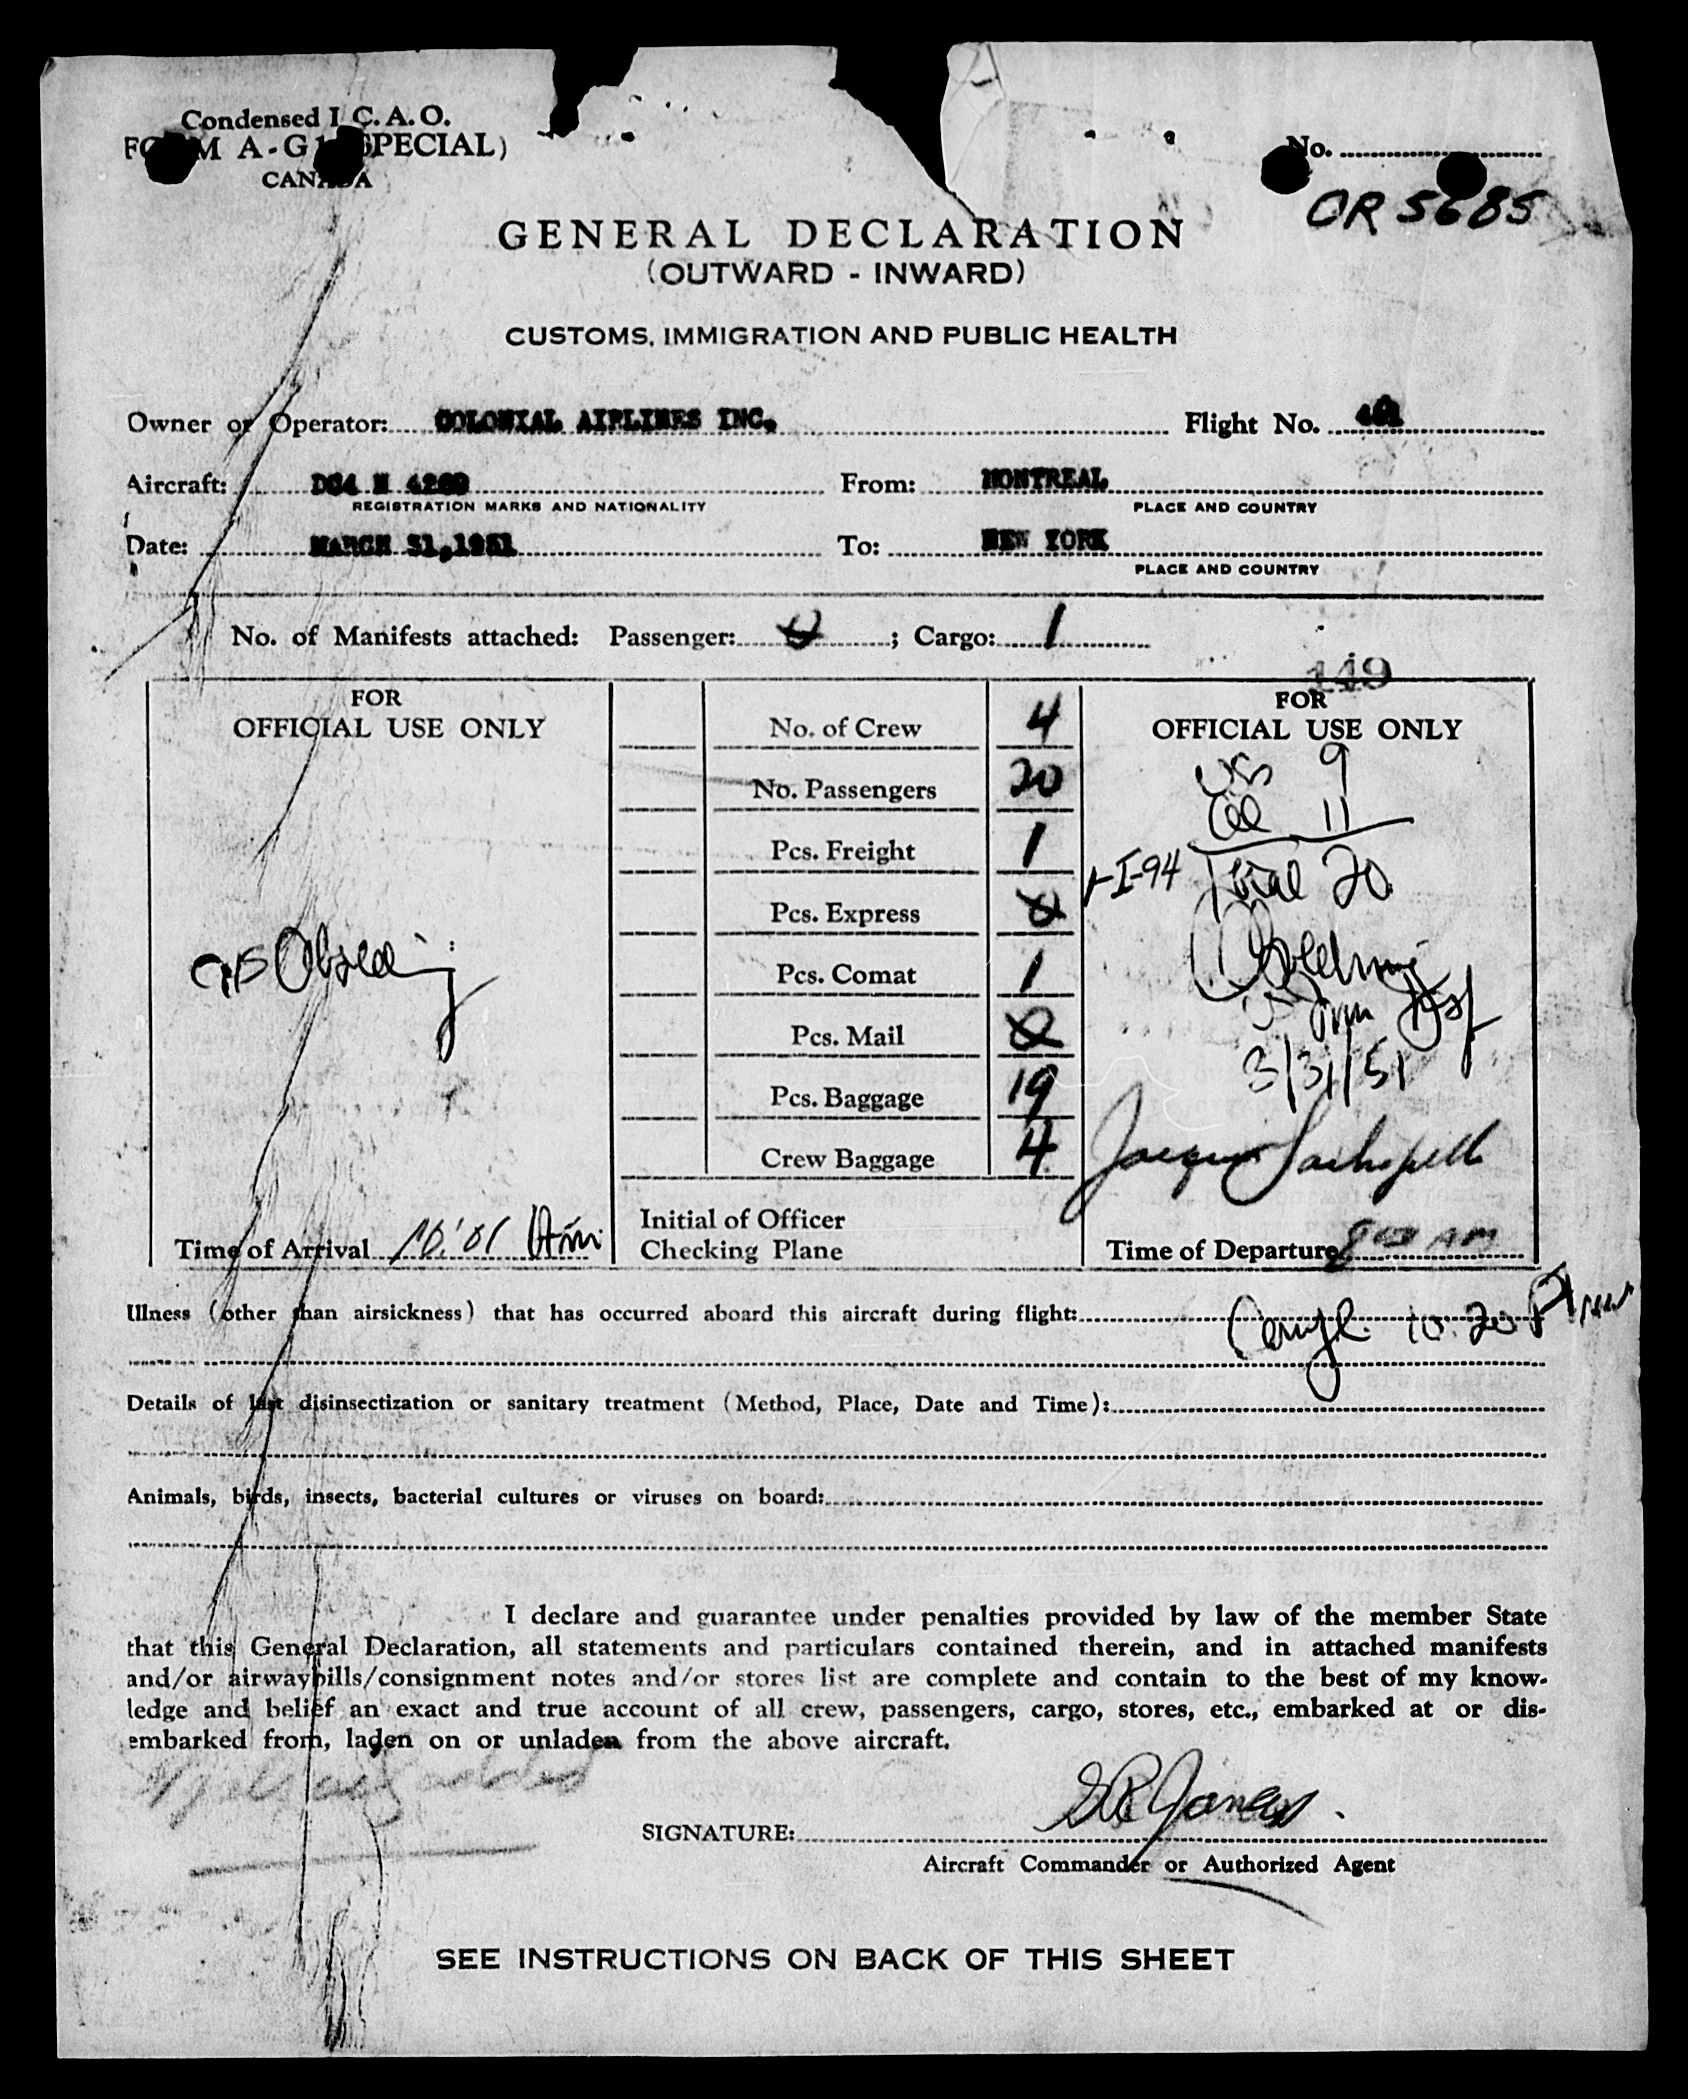 Condensed I.C.A.O.
FORM A-G1 (SPECIAL)
CANADA
No.
OR 5685
GENERAL DECLARATION
(OUTWARD - INWARD)
CUSTOMS, IMMIGRATION AND PUBLIC HEALTH
Owner or Operator: COLONIAL AIRLINES INC. Flight No.
Aircraft: DC4 N 4269 From: MONTREAL
REGISTRATION MARKS AND NATIONALITY PLACE AND COUNTRY
Date: MARCH 31,1951 To: NEW YORK
PLACE AND COUNTRY
No. of Manifests attached: Passenger: 0; Cargo: 1
149
FOR
OFFICIAL USE ONLY
Time of Arrival 10:01
No. of Crew 4
No. Passengers 20
Pcs. Freight 1
Pcs. Express 0
Pcs. Comat 1
Pcs. Mail 0
Pcs. Baggage 19
Crew Baggage 4
Initial of Officer
Checking Plane
FOR
OFFICIAL USE ONLY
9
11
I-94 Total 20
3/31/51
Time of Departure 8 AM
Illness (other than airsickness) that has occurred aboard this aircraft during flight:
Details of last disinsectization or sanitary treatment (Method, Place, Date and Time):
Animals, birds, insects, bacterial cultures or viruses on board:
I declare and guarantee under penalties provided by law of the member State
that this General Declaration, all statements and particulars contained therein, and in attached manifests
and/or airwaybills/consignment notes and/or stores list are complete and contain to the best of my know-
ledge and belief an exact and true account of all crew, passengers, cargo, stores, etc., embarked at or dis-
embarked from, laden on or unladen from the above aircraft.
SIGNATURE:
Aircraft Commander or Authorized Agent
SEE INSTRUCTIONS ON BACK OF THIS SHEET